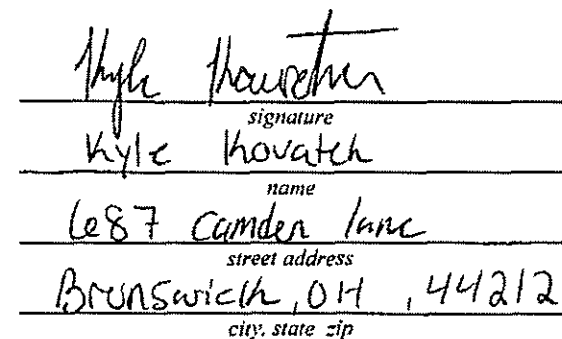 Kyle
signature
Kyle Kovatch
name
687 Camden lane
street address
Brunswick, OH, 44212
city, state zip